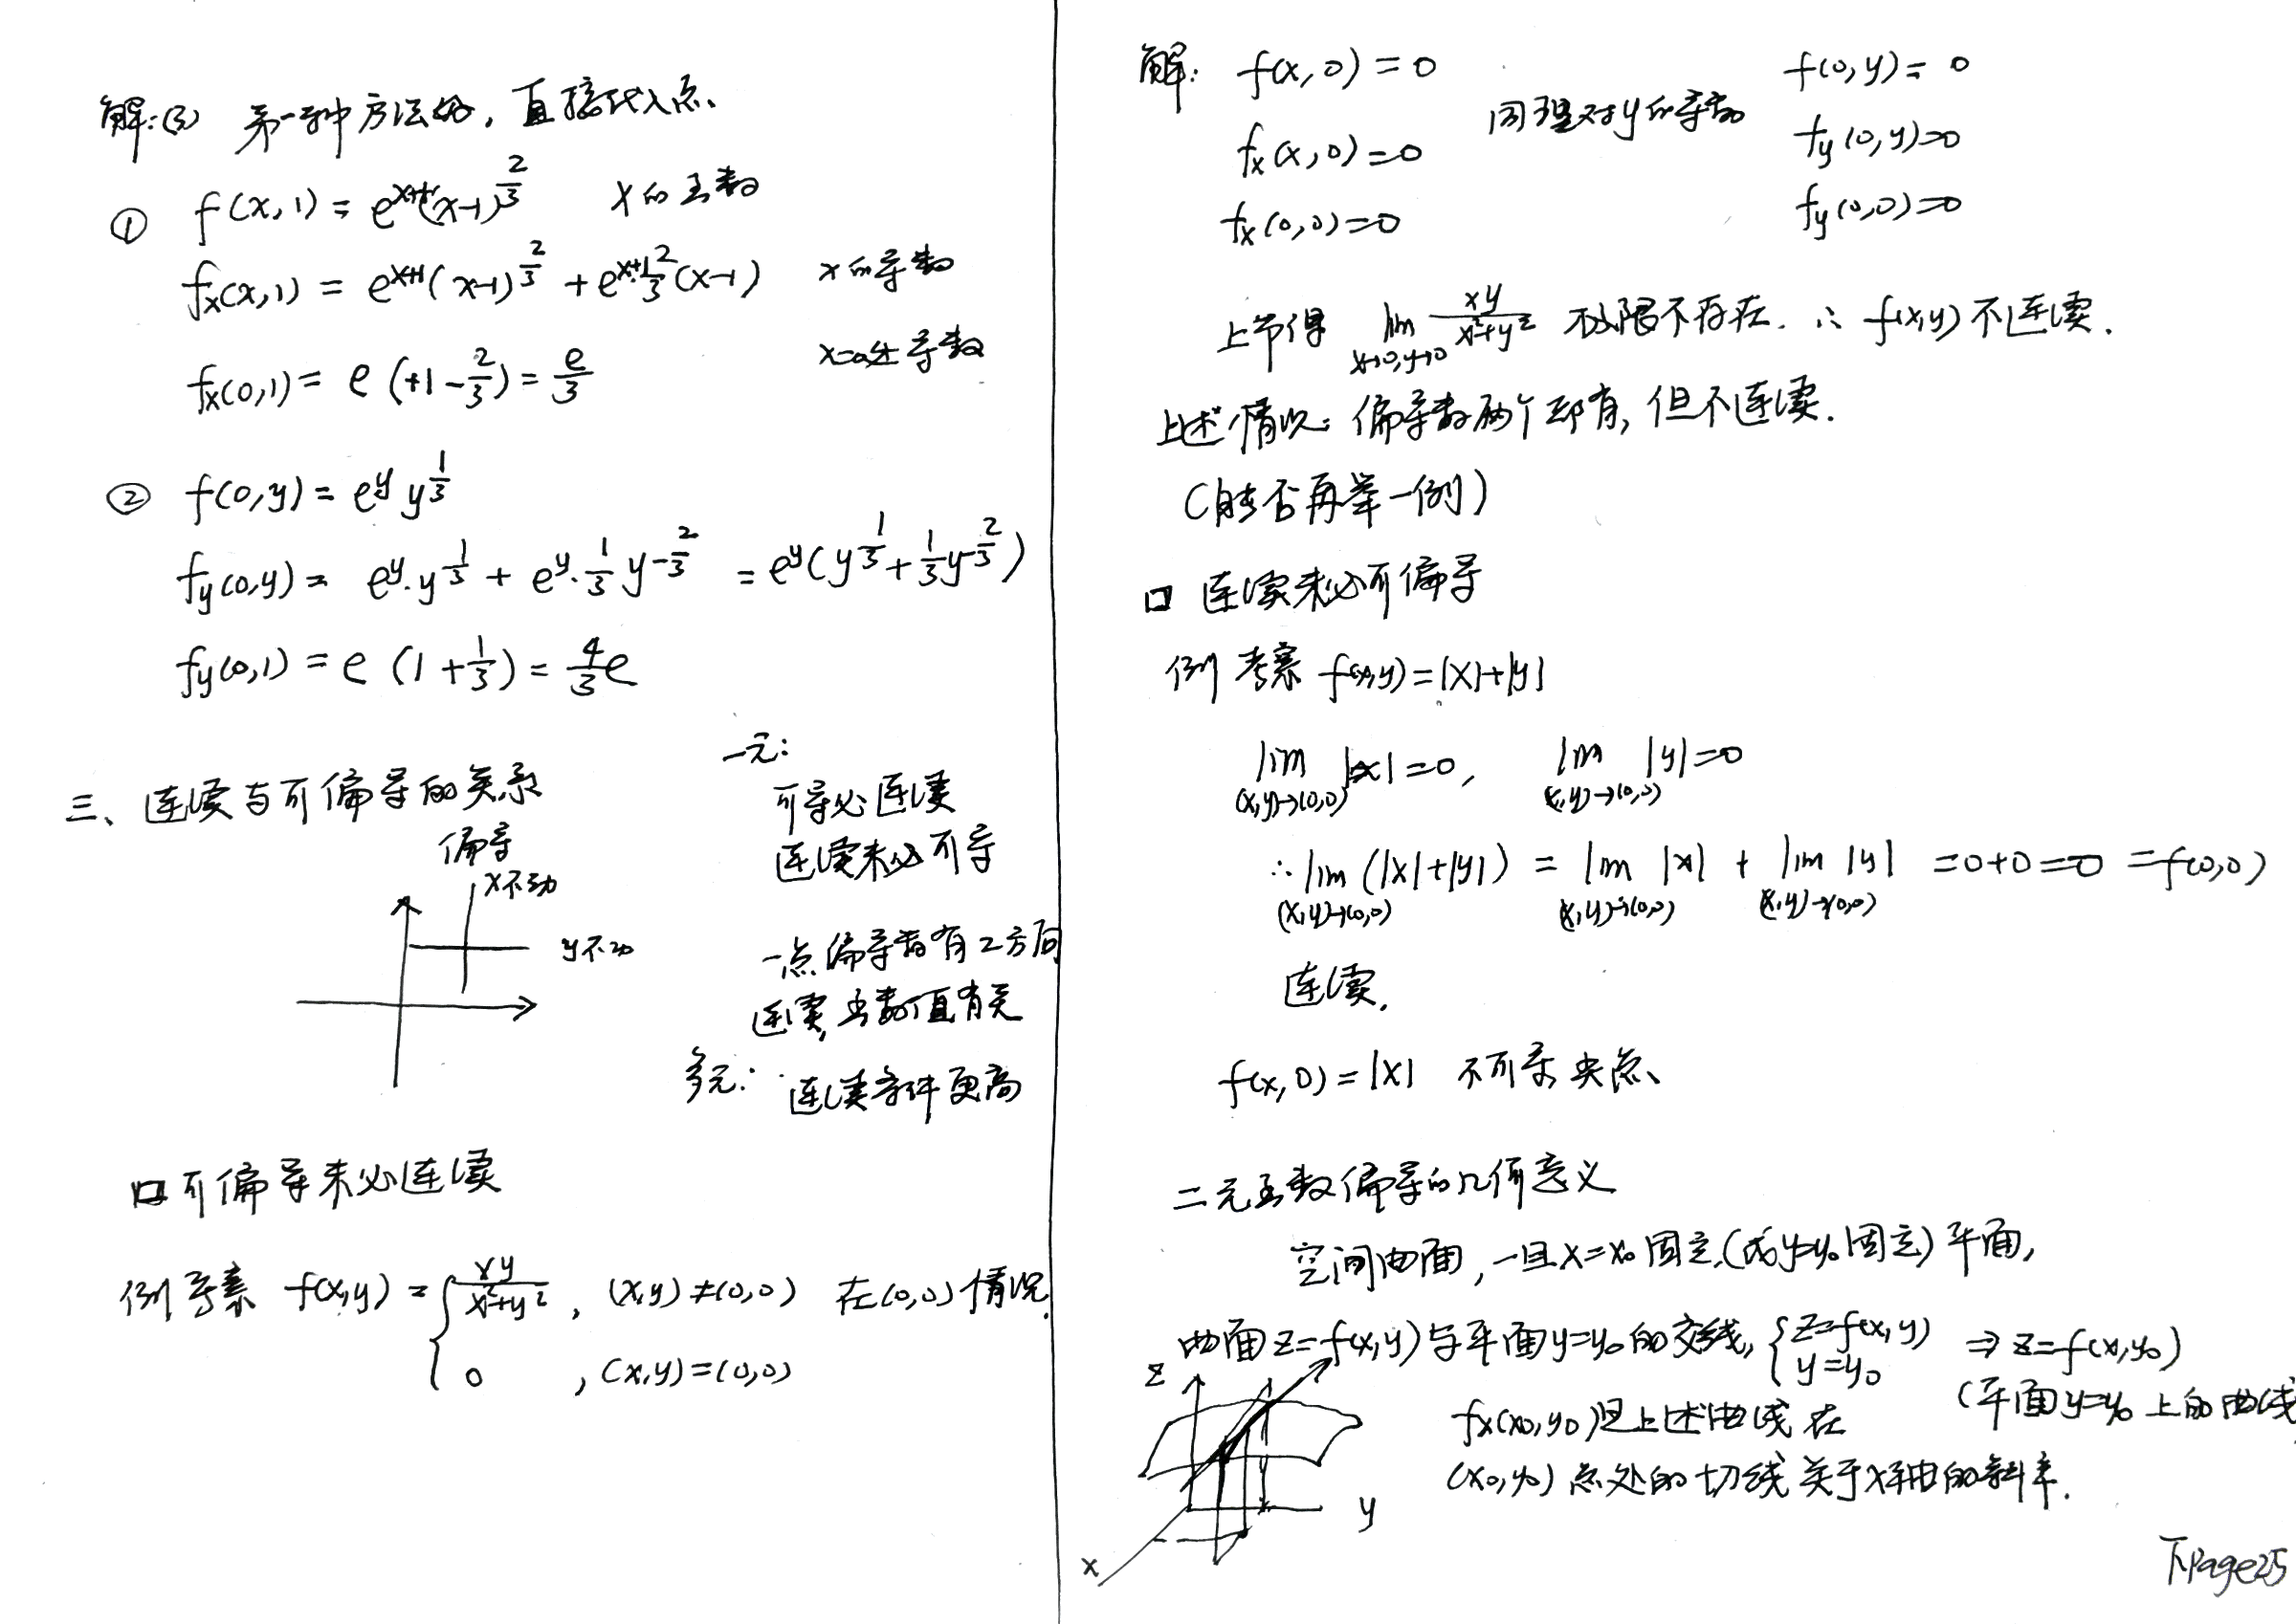 解:(3) 第一种方法好，直接代入点、
① f(x,1) = e^{x+1}(x-1)^{\frac{2}{3}}  x的函数
f_x(x,1) = e^{x+1}(x-1)^{\frac{2}{3}} + e^{x+1}·\frac{2}{3}(x-1)  x的导数
f_x(0,1) = e(+1-\frac{2}{3}) = \frac{e}{3}  x=0处导数
② f(0,y) = e^y y^{\frac{1}{3}}
f_y(0,y) = e^y·y^{\frac{1}{3}} + e^y·\frac{1}{3}y^{-\frac{2}{3}} = e^y(y^{\frac{1}{3}}+\frac{1}{3}y^{-\frac{2}{3}})
f_y(0,1) = e(1+\frac{1}{3}) = \frac{4}{3}e
三、连续与可偏导的关系
偏导
x不动
y不动
一元:
可导必连续
连续未必可导
一点偏导数有2方向
连续,函数值有关
多元:
连续条件更高
口可偏导未必连续
例 考察 f(x,y) = { \frac{xy}{x^2+y^2}, (x,y)≠(0,0) 在(0,0)情况.
0 , (x,y)=(0,0)
解: f(x,0)=0
f_x(x,0)=0
f_x(0,0)=0
同理对y的导数
f(0,y)=0
f_y(0,y)=0
f_y(0,0)=0
上节得 lim_{x→0,y→0} \frac{xy}{x^2+y^2} 极限不存在. ∴ f(x,y)不连续.
上述情况: 偏导数两个都有, 但不连续.
(能否再举一例)
口 连续未必可偏导
例 考察 f(x,y)=|x|+|y|
lim_{(x,y)→(0,0)} |x|=0, lim_{(x,y)→(0,0)} |y|=0
∴ lim_{(x,y)→(0,0)} (|x|+|y|) = lim_{(x,y)→(0,0)} |x| + lim_{(x,y)→(0,0)} |y| =0+0=0 =f(0,0)
连续.
f(x,0)=|x| 不可导 尖点、
二元函数偏导的几何意义
空间曲面,一旦x=x_0固定.(或y=y_0固定)平面,
曲面z=f(x,y)与平面y=y_0的交线, { z=f(x,y) ⇒ z=f(x,y_0)
y=y_0
(平面y=y_0上的曲线
f_x(x_0,y_0)是上述曲线在
(x_0,y_0)点处的切线关于x轴的斜率.
z
y
x
下Page25